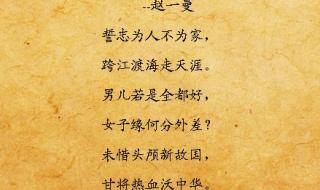 --赵一曼
誓志为人不为家，
跨江渡海走天涯。
男儿若是全都好，
女子缘何分外差？
未惜头颅新故国，
甘将热血沃中华。